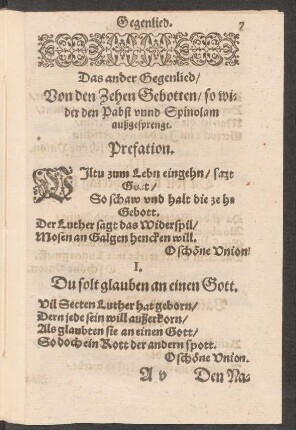 Gegenlied. 7
Das ander Gegenlied/
Von den Zehen Gebotten/ so wi-
der den Pabst vnnd Spinolam
außgesprengt.
Prefation.
WIltu zum Lebn eingehn/ sagt
Gott/
So schaw vnd halt die zehn
Gebott.
Der Luther sagt das Widerspil/
Mosen an Galgen hencken will.
O schöne Union!
I.
Du solt glauben an einen Gott.
Vil Secten Luther hat geborn/
Dern jede sein will außerkorn/
Als glaubten sie an einen Gott/
So doch ein Rott der andern spott.
O schöne Union.
A v Den Na-